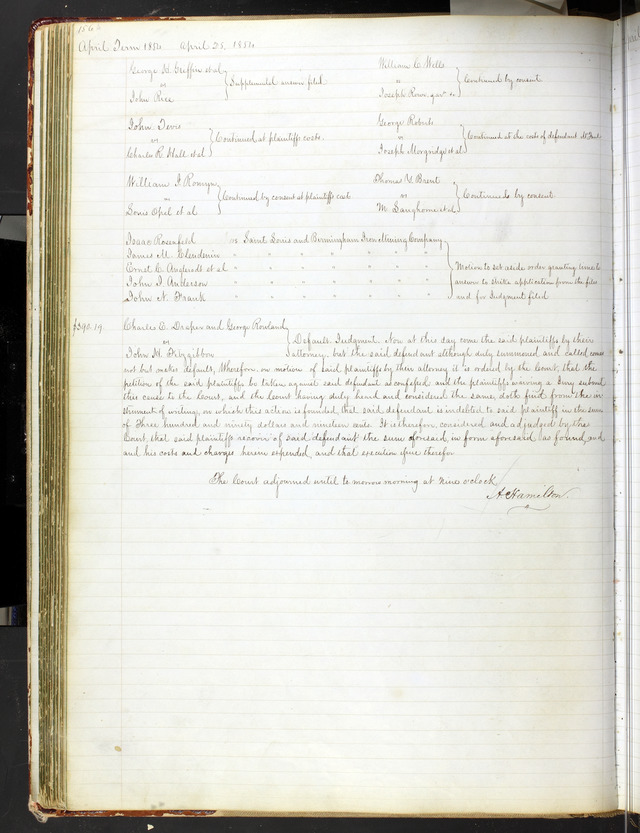 April Term 1854. April 25, 1854
George H. Griffin et al
vs
John Rice
Supplemental answer filed
William C. Wells
vs
Joseph Rowe
Continued by consent
John Tevis
vs
Charles R. Hall et al
Continued at plaintiffs costs.
George Roberts
vs
Joseph Morgridge et al
Continued at the costs of defendant
William J. Romyn
vs
Louis Opel et al
Continued by consent at plaintiffs cost
Thomas T. Brent
vs
M. Langhorne et al
Continued by consent
Isaac Rosenfeld vs Saint Louis and Birmingham Iron Mining Company
James M. Clendenin " " " " " "
Ernst C. Angelrodt et al " " " " " "
John J. Anderson " " " " " "
John N. Frank " " " " " "
Motion to set aside order granting leave to
answer to strike application from the files
and for Judgment filed
$390.19. Charles C. Draper and George Rowland
vs
John H. Fitzgibbon
Default Judgment. Now at this day come the said plaintiffs by their
attorney, but the said defendant although duly summoned and called comes
not but makes default, Wherefore on motion of said plaintiffs by their attorney it is ordered by the Court, that the
petition of the said plaintiffs be taken against said defendant as confessed and the plaintiffs waiving a Jury submit
this cause to the Court, and the Court having duly heard and considered the same, doth find from the in
strument of writing, on which this action is founded, that said defendant is indebted to said plaintiff in the sum
of Three hundred and ninety dollars and nineteen cents. It is therefore, considered and adjudged by the
Court, that said plaintiffs recover of said defendant the sum aforesaid, in form aforesaid, as found, and
and his costs and charges herein expended, and that execution issue therefor
The Court adjourned until to morrow morning at Nine o'clock
A. Hamilton.